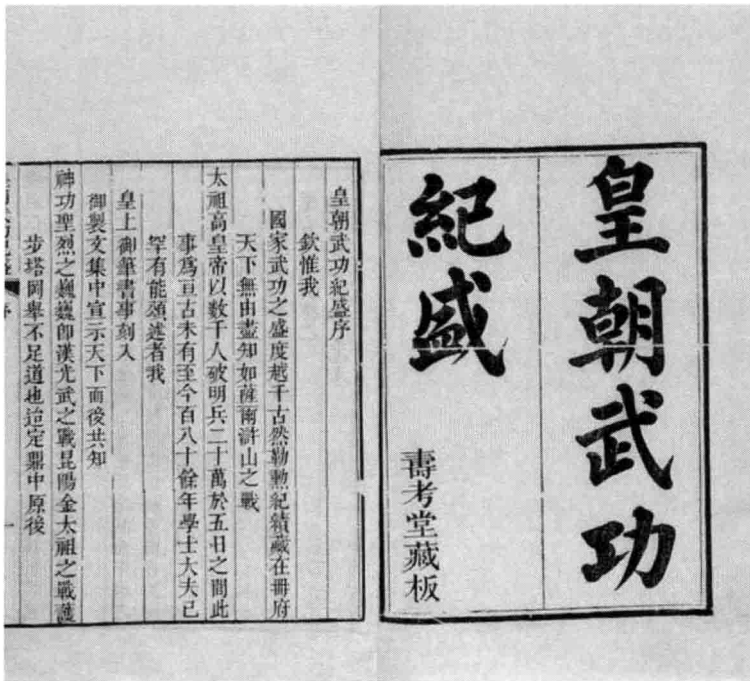 皇朝武功
紀盛
壽考堂藏板
皇朝武功紀盛序
欽惟我
國家武功之盛度越千古然勒勲紀績藏在冊府
天下無由盡知如薩爾滸山之戰
太祖高皇帝以數千人破明兵二十萬於五日之間此
事爲亘古未有至今百八十餘年學士大夫已
罕有能頌述者我
皇上御筆書事刻入
御製文集中宣示天下而後共知
神功聖烈之巍巍卽漢光武之戰昆陽金太祖之戰護
步塔岡舉不足道也迨定鼎中原後
序
一